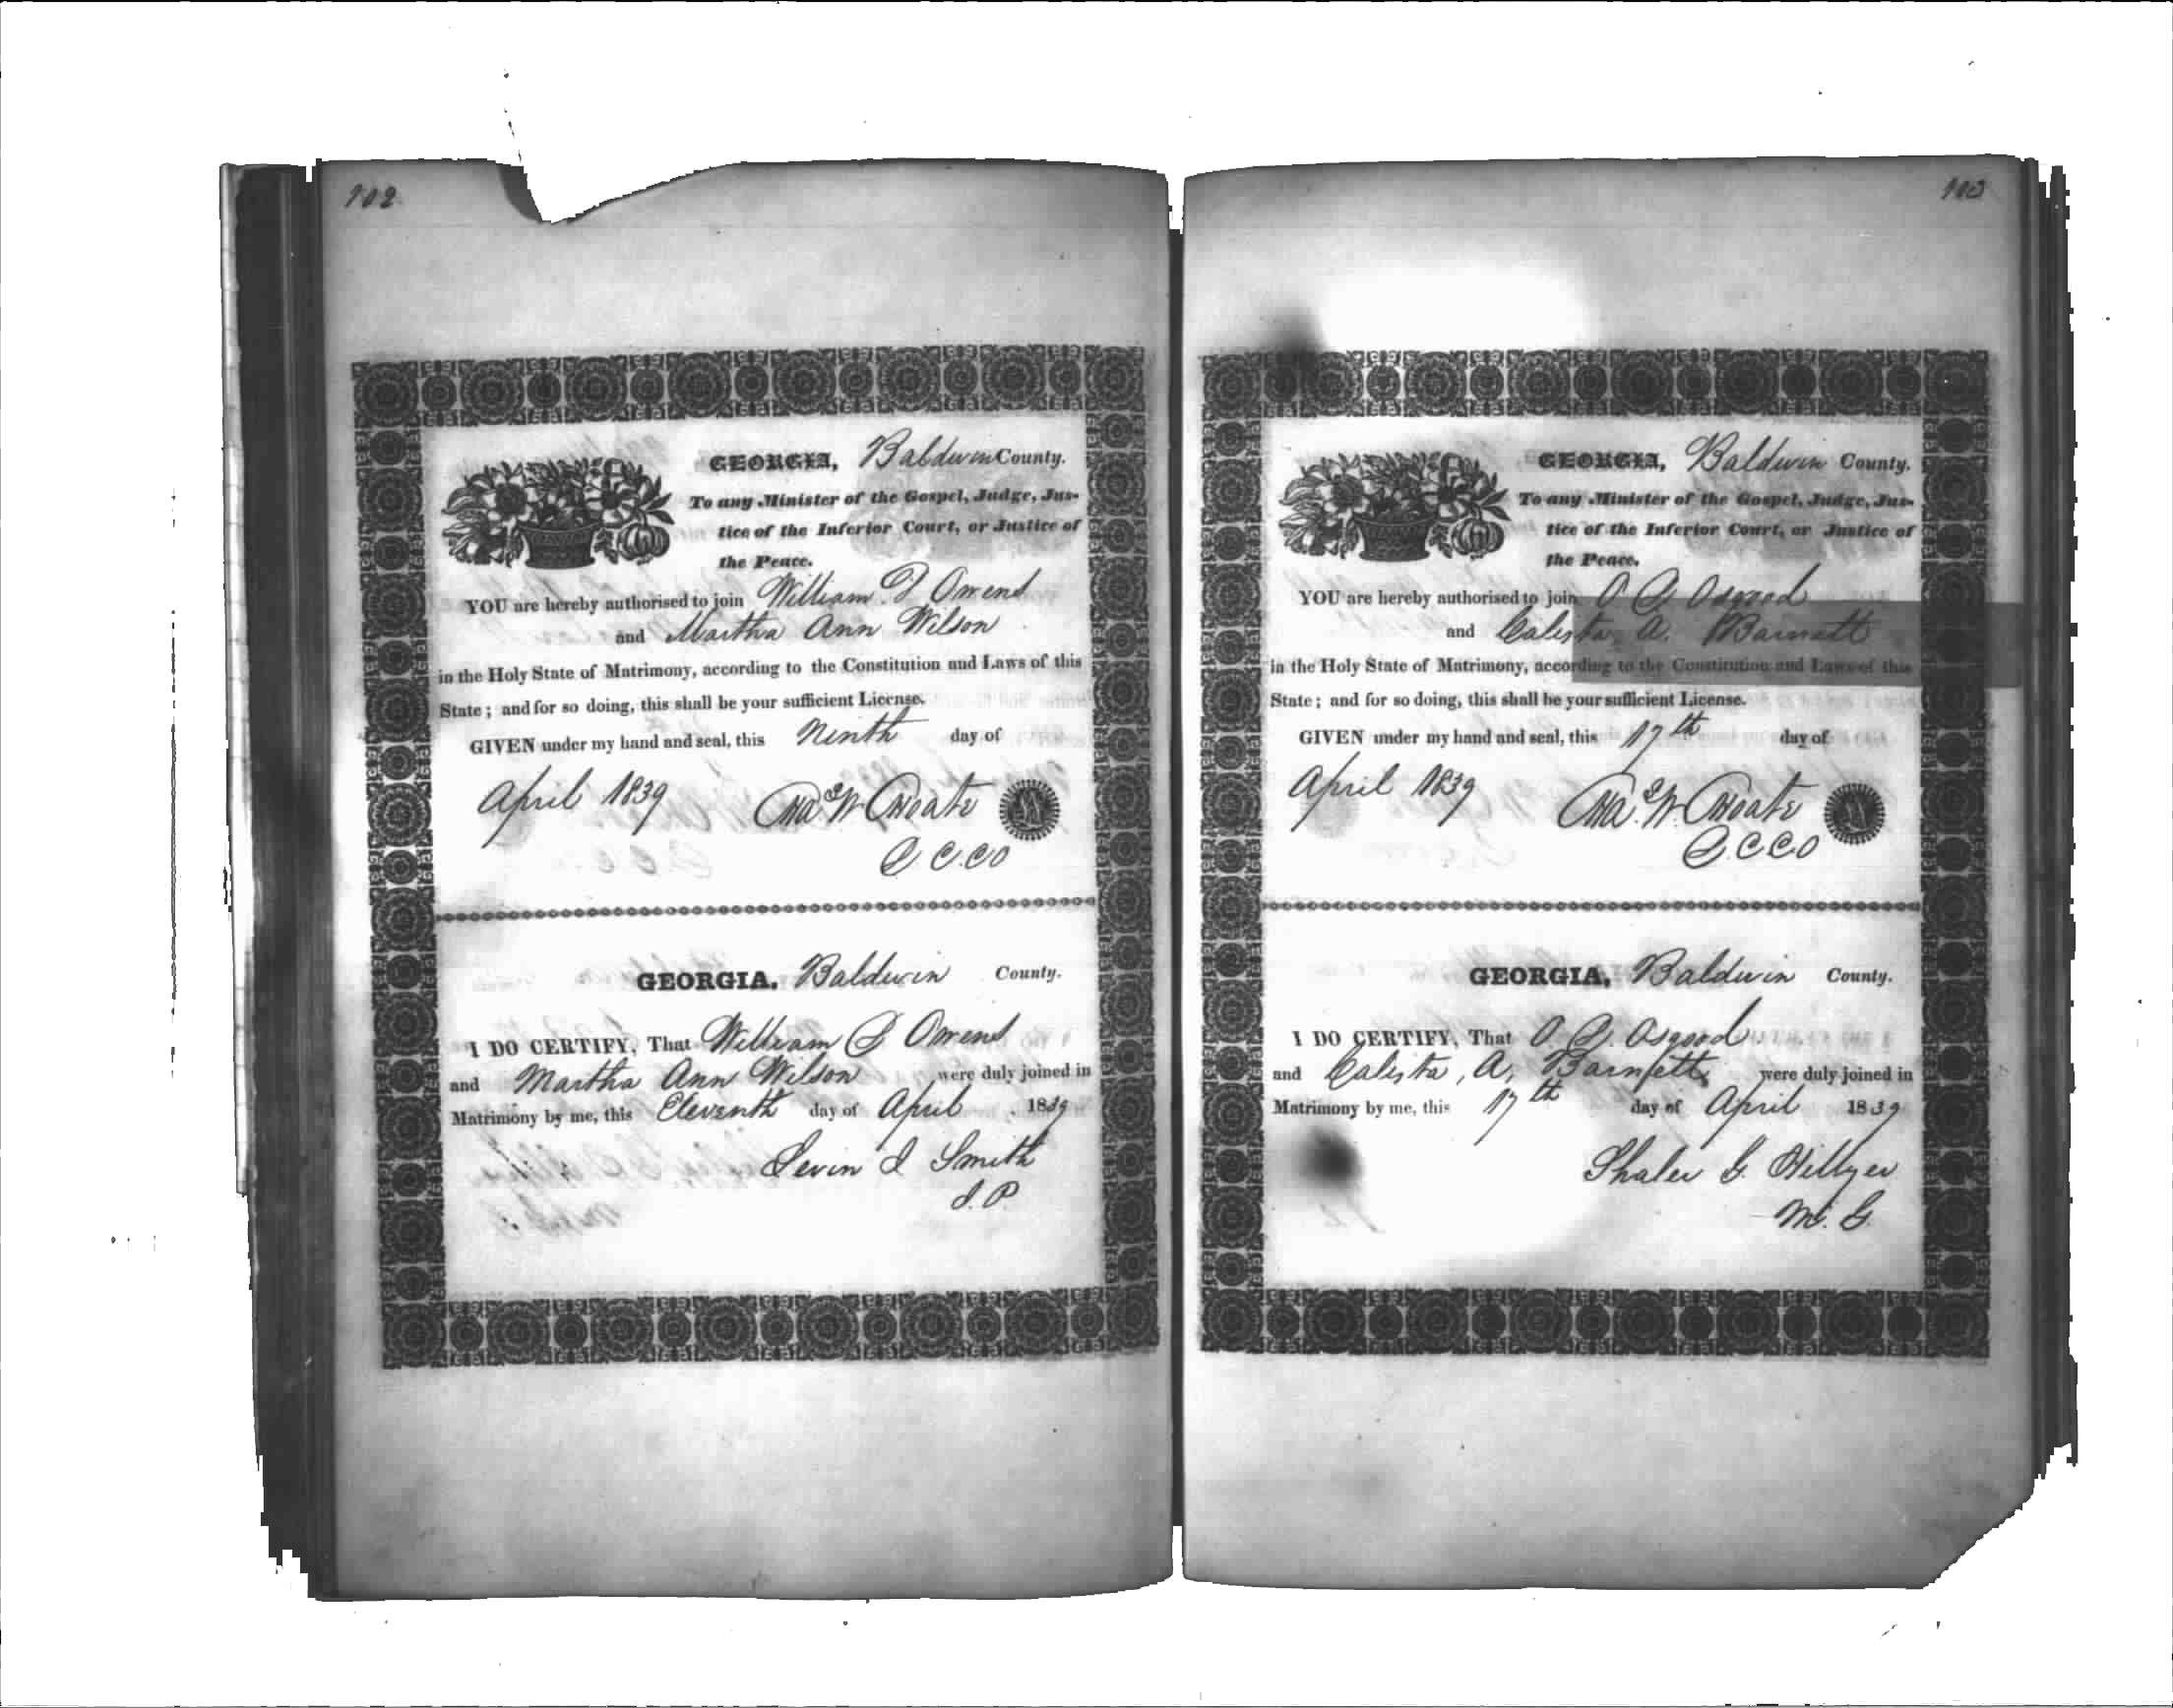 102
GEORGIA, Baldwin County.
To any Minister of the Gospel, Judge, Jus-
tice of the Inferior Court, or Justice of
the Peace.
YOU are hereby authorised to join William Owens
and Martha Ann Wilson
in the Holy State of Matrimony, according to the Constitution and Laws of this
State; and for so doing, this shall be your sufficient License.
GIVEN under my hand and seal, this Ninth day of
April 1839
Chas W Choate
C.C.O
GEORGIA. Baldwin County.
I DO CERTIFY, That William Owens
and Martha Ann Wilson were duly joined in
Matrimony by me, this Eleventh day of April 1839
Levin J Smith
J.P.
103
GEORGIA, Baldwin County.
To any Minister of the Gospel, Judge, Jus-
tice of the Inferior Court, or Justice of
the Peace.
YOU are hereby authorised to join O Osgood
and Calista, A. Barnett
in the Holy State of Matrimony, according to the Constitution and Laws of this
State; and for so doing, this shall be your sufficient License.
GIVEN under my hand and seal, this 17th day of
April 1839
Chas. W. Choate
C.C.O
GEORGIA, Baldwin County.
I DO CERTIFY, That O. Osgood
and Calista, A, Barnett were duly joined in
Matrimony by me, this 17th day of April 1839
Shaler G. Hillyer
M. G.